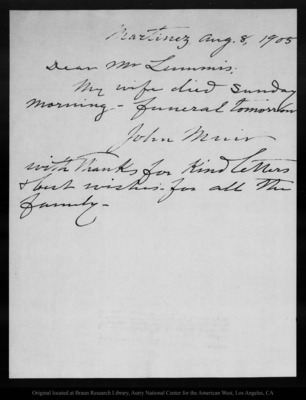 Martinez Aug. 8, 1905
Dear Mr Lummis:
My wife died Sunday
morning - funeral tomorrow
John Muir
with thanks for kind letters
& best wishes for all the
family -
Original located at Braun Research Library, Autry National Center for the American West, Los Angeles, CA